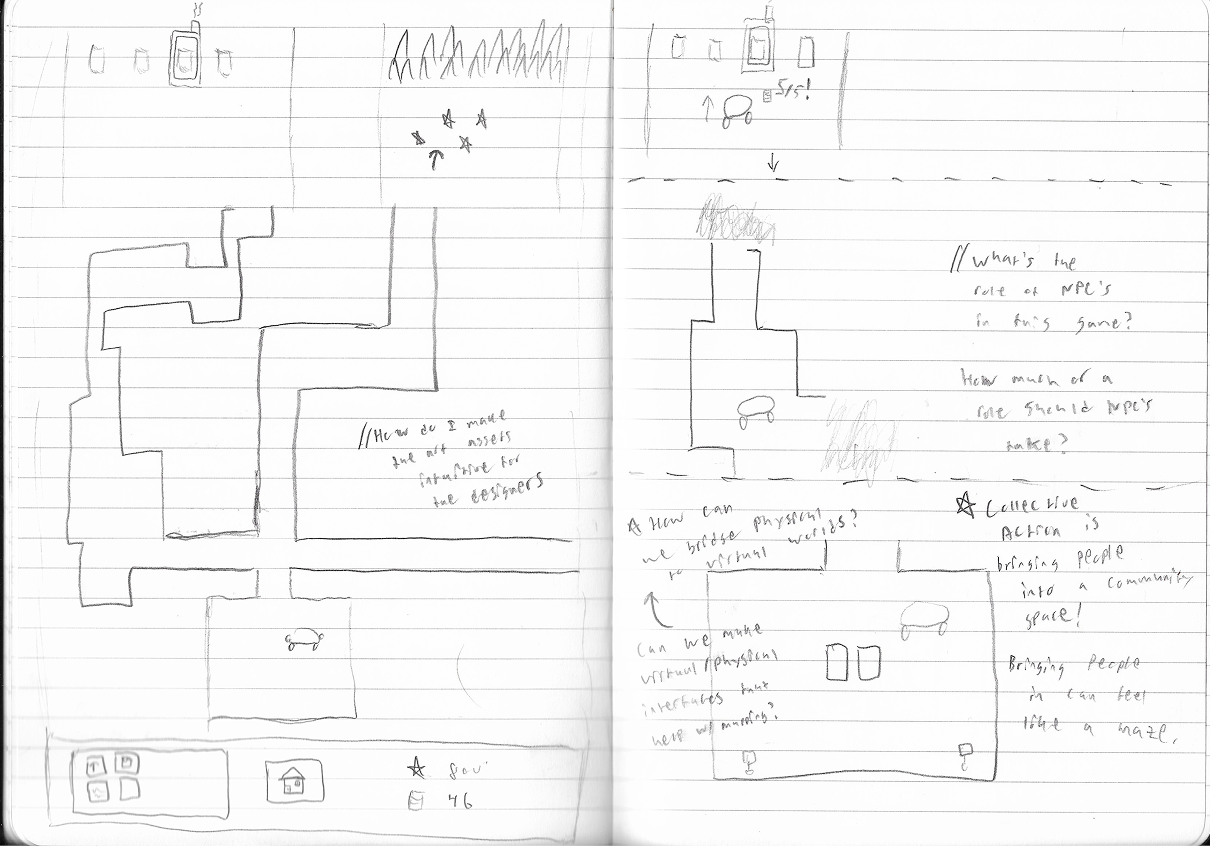 //How do I make
the art assets
intuitive for
the designers
46
5/5!
//What's the
role of NPC's
in this game?
How much of a
role should NPC's
take?
☆ How can
we bridge physical
to virtual worlds?
Can we make
virtual/physical
interfaces that
help w/ mapping?
☆ Collective
Action is
bringing people
into a community
space!
Bringing people
in can feel
like a maze.